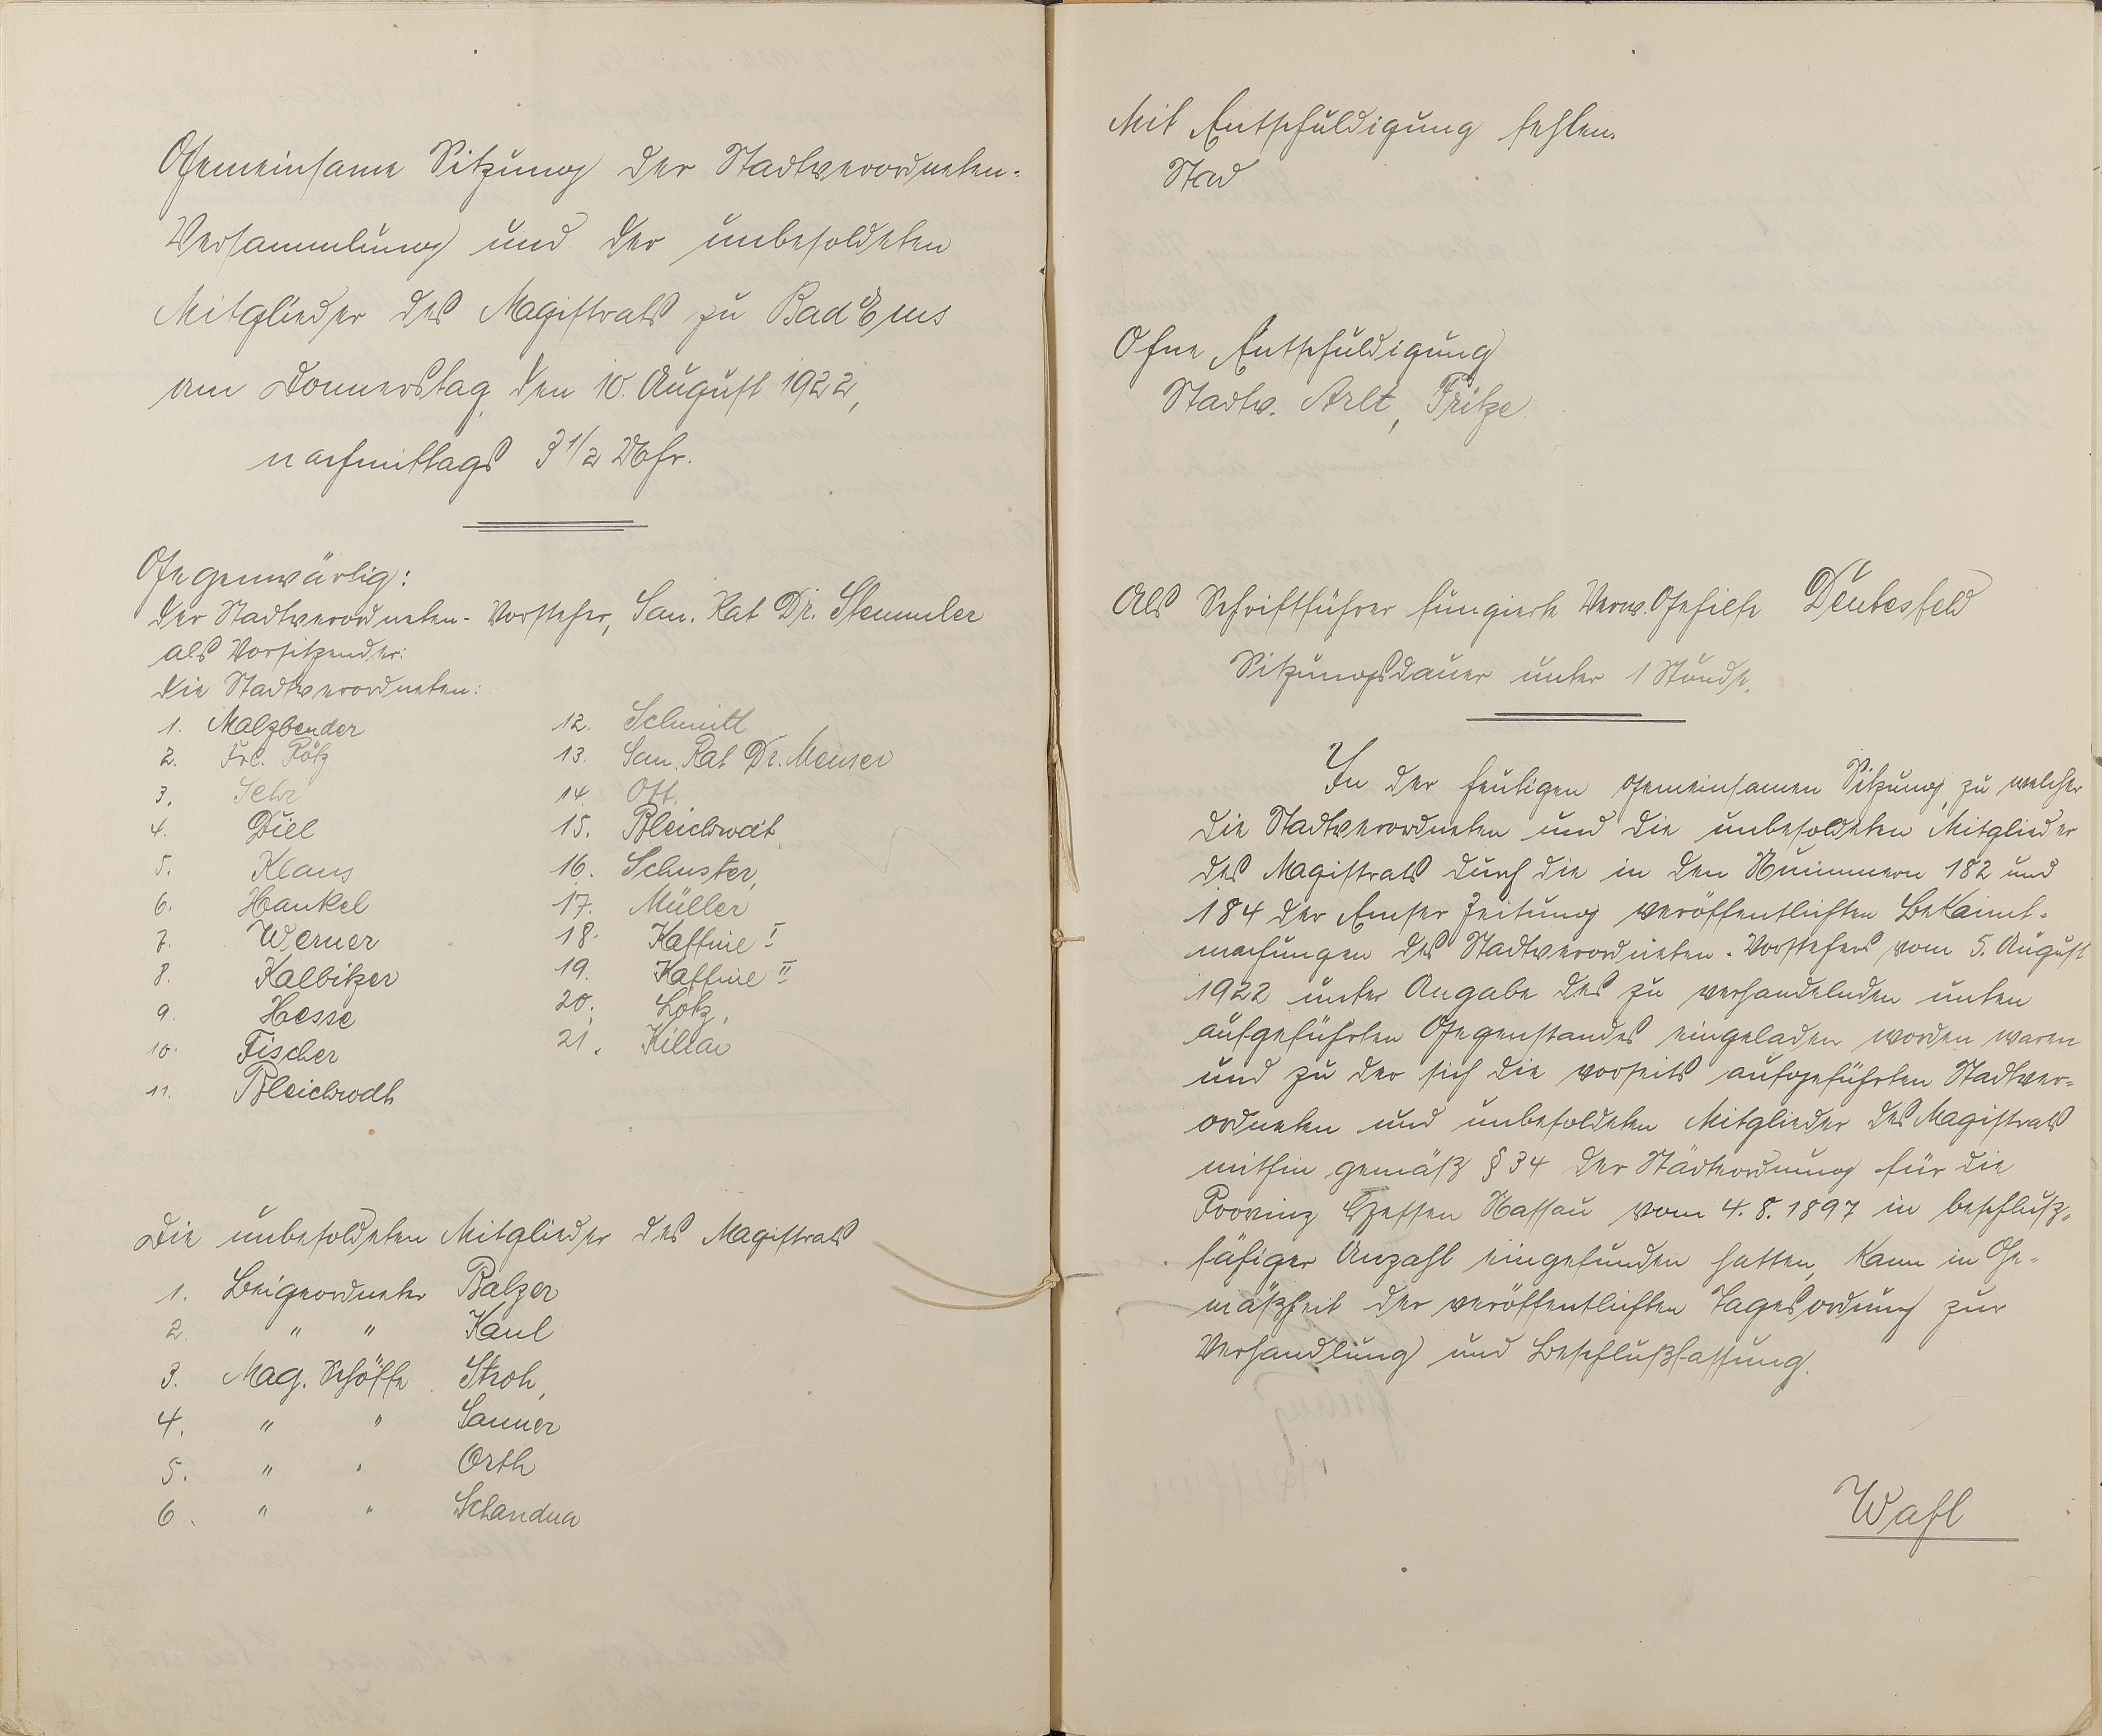 Gemeinsame Sitzung der Stadtverordneten-
Versammlung und der unbesoldeten
Mitglieder des Magistrats zu Bad Ems
am Donnerstag, den 10. August 1922,
nachmittags 3 1/2 Uhr.
Gegenwärtig:
der Stadtverordneten-Vorsteher, San. Rat Dr. Stemmler
als Vorsitzender:
die Stadtverordneten:
1. Malzbender
2. Frl. Rötz
3.
4. Diel
5. Klaus
6. Hankel
7. Werner
8. Kalbitzer
9. Hesse
10. Fischer
11. Bleichrodt
12. Schmitt
13. San. Rat Dr. Meuser
14. Ott.
15. Bleichrodt,
16. Schuster,
17. Müller
18. Kaffine I
19. Kaffine II
20. Lotz,
21. Killar
Die unbesoldeten Mitglieder des Magistrats
1. Beigeordneter Balzer
2. " " Kaul
3. Mag. Schöffe Stroh,
4. " " Sanner
5. " " Orth
6. " " Schandua
Mit Entschuldigung fehlen.
Stad
Ohne Entschuldigung
Stadtv. Arlt, Fritze
Als Schriftführer fungierte Verw. Gehilfe Deutesfeld
Sitzungsdauer unter 1 Stunde.
In der heutigen gemeinsamen Sitzung, zu welcher
die Stadtverordneten und die unbesoldeten Mitglieder
des Magistrats durch die in den Nummern 182 und
184 der Emser Zeitung veröffentlichten Bekannt-
machungen des Stadtverordneten-Vorstehers vom 5. August
1922 unter Angabe des zu verhandelnden unten
aufgeführten Gegenstandes eingeladen worden waren
und zu der sich die vorseits aufgeführten Stadtver-
ordneten und unbesoldeten Mitglieder des Magistrats
mithin gemäß § 34 der Städteordnung für die
Provinz Hessen Nassau vom 4. 8. 1897 in beschluß-
fähiger Anzahl eingefunden hatten, kam in Ge-
mäßheit der veröffentlichten Tagesordnung zur
Verhandlung und Beschlußfassung.
Wahl